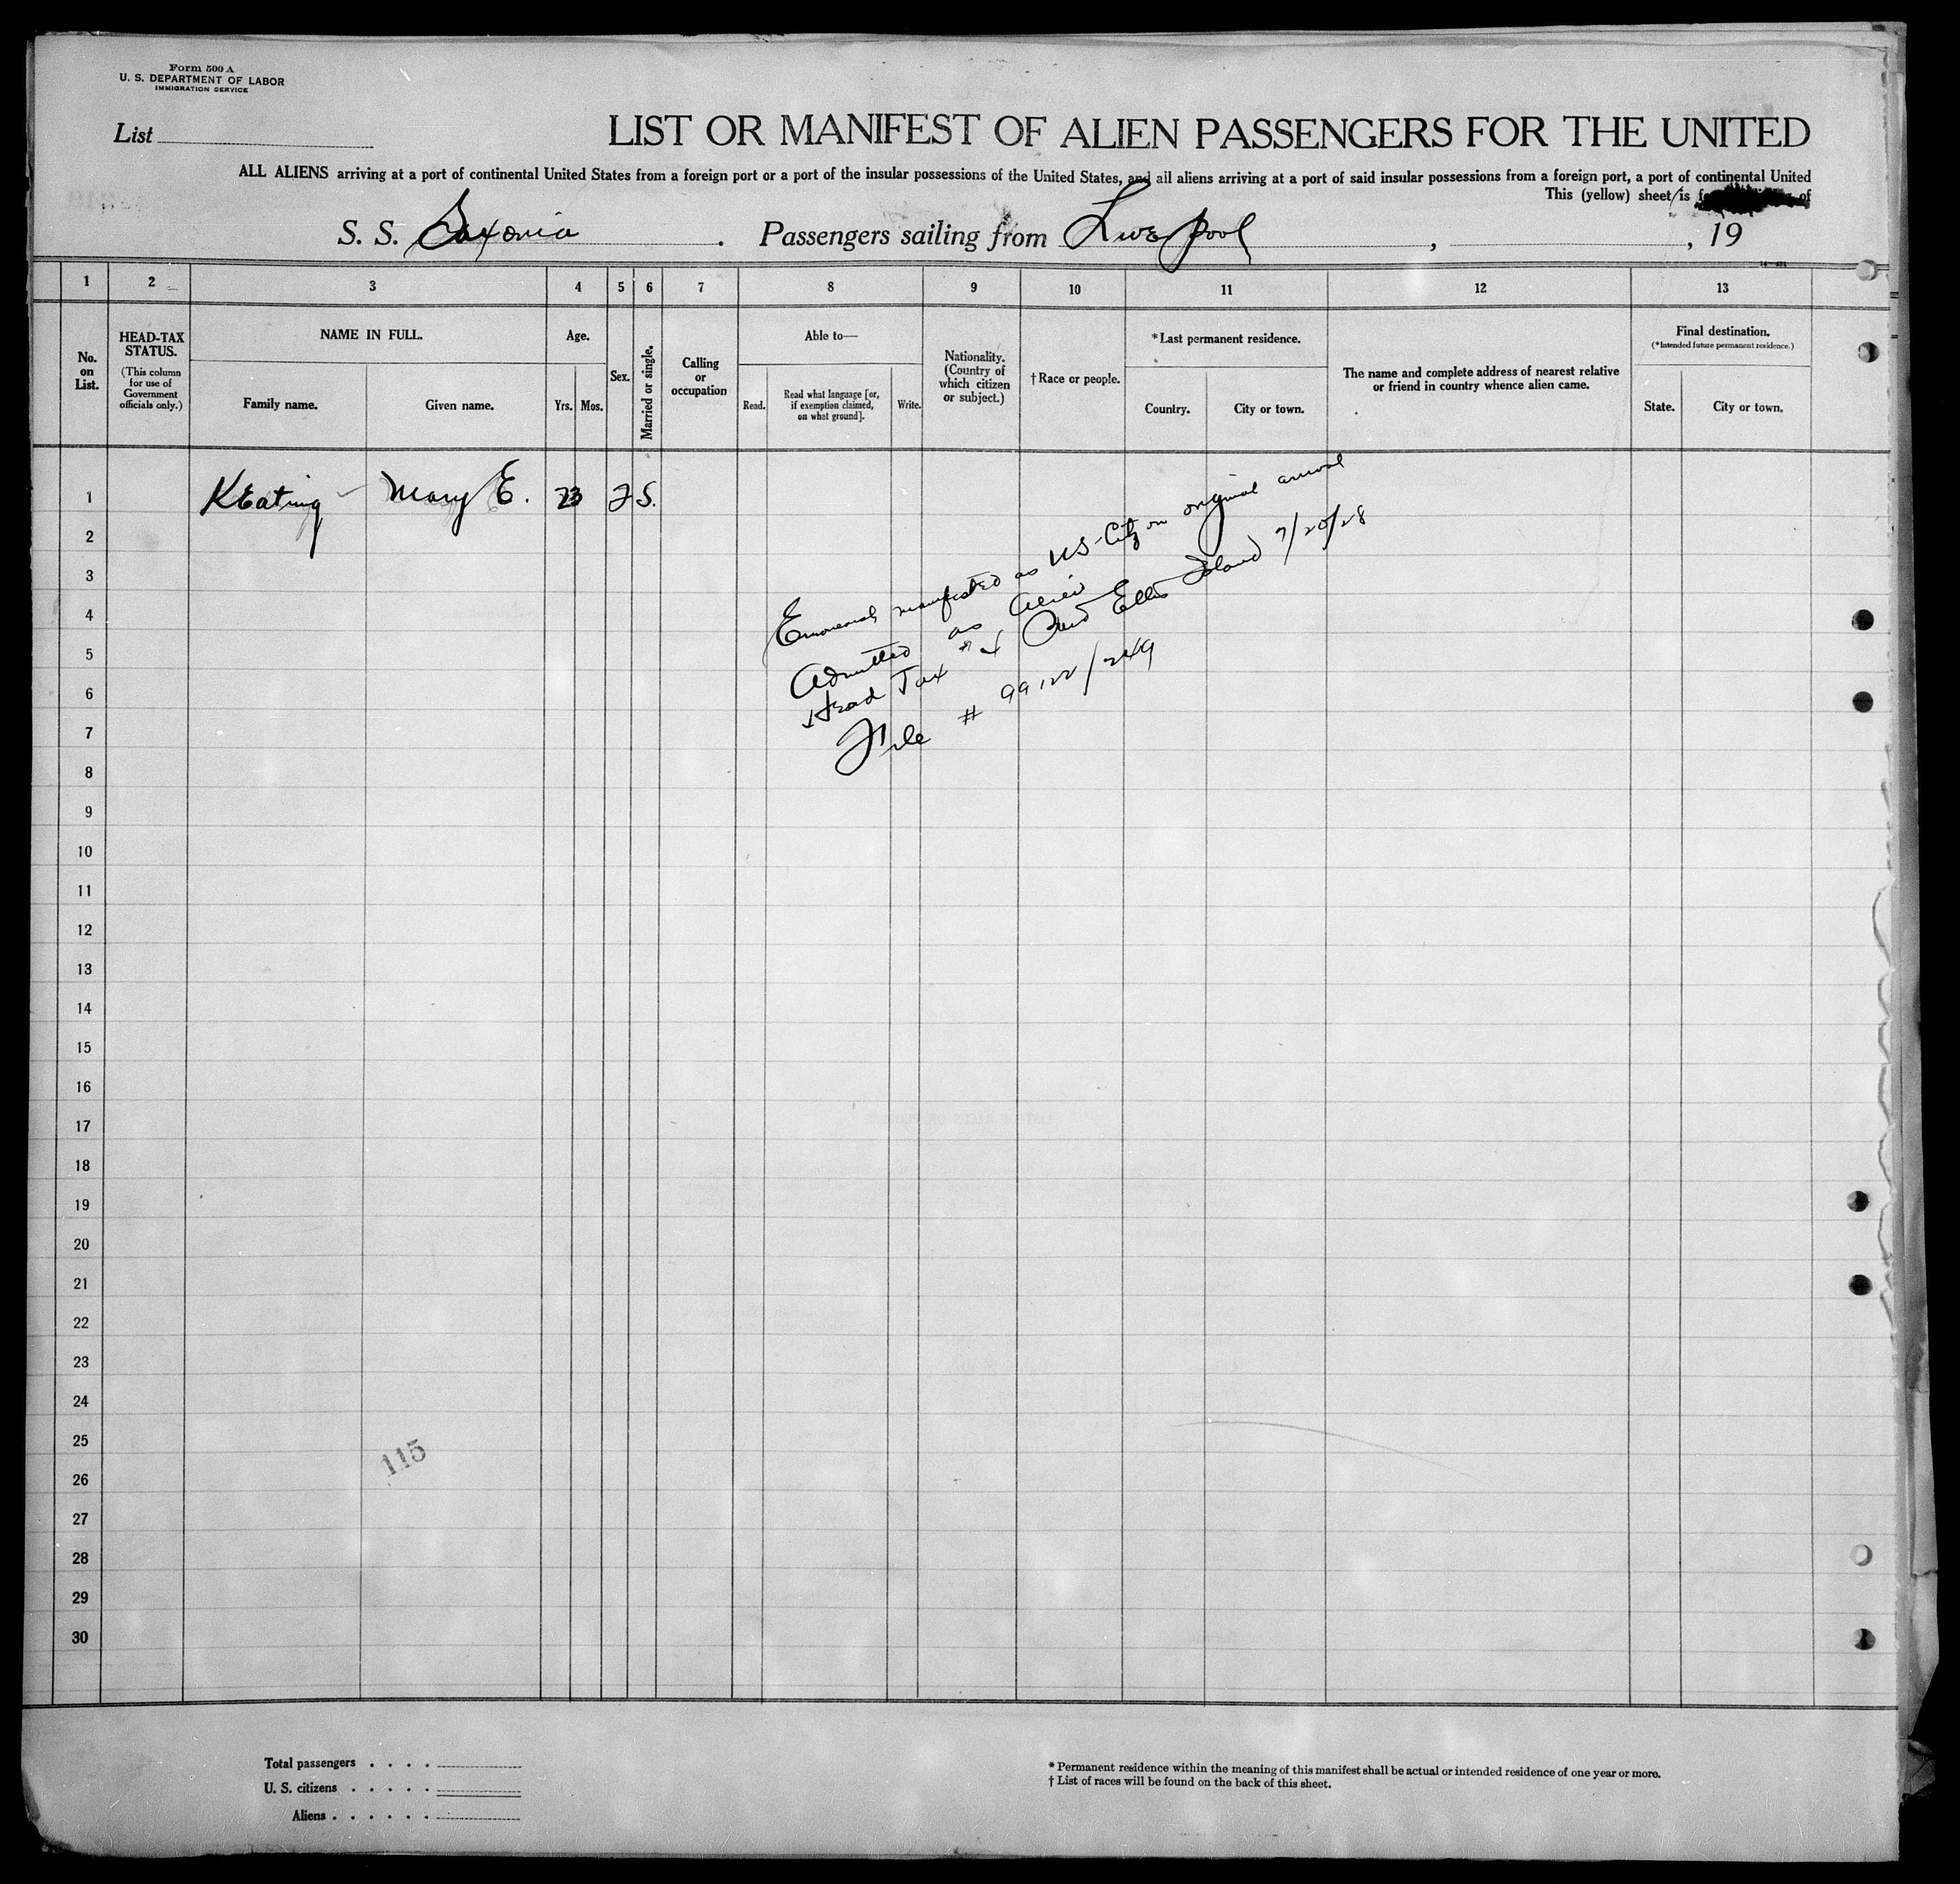 Form 500 A
U. S. DEPARTMENT OF LABOR
IMMIGRATION SERVICE
List
LIST OR MANIFEST OF ALIEN PASSENGERS FOR THE UNITED
ALL ALIENS arriving at a port of continental United States from a foreign port or a port of the insular possessions of the United States, and all aliens arriving at a port of said insular possessions from a foreign port, a port of continental United
This (yellow) sheet is of
S. S. Saxonia . Passengers sailing from Liverpool , , 19
1 2 3 4 5 6 7 8 9 10 11 12 13
No. on List.
HEAD-TAX STATUS.
(This column for use of Government officials only.)
NAME IN FULL.
Family name. Given name.
Age.
Yrs. Mos.
Sex.
Married or single.
Calling or occupation
Able to—
Read. Read what language [or, if exemption claimed, on what ground]. Write.
Nationality. (Country of which citizen or subject.)
†Race or people.
*Last permanent residence.
Country. City or town.
The name and complete address of nearest relative or friend in country whence alien came.
Final destination.
(*Intended future permanent residence.)
State. City or town.
1 Keating Mary E. 23 F S.
2
3
4
5
6
7
8
9
10
11
12
13
14
15
16
17
18
19
20
21
22
23
24
25
26
27
28
29
30
manifested as US-Citz on original arrival
Admitted as alien
Head Tax Paid Ellis Island 7/20/28
File # 99122/249
115
Total passengers . . . .
U. S. citizens . . . . .
Aliens . . . . . .
* Permanent residence within the meaning of this manifest shall be actual or intended residence of one year or more.
† List of races will be found on the back of this sheet.